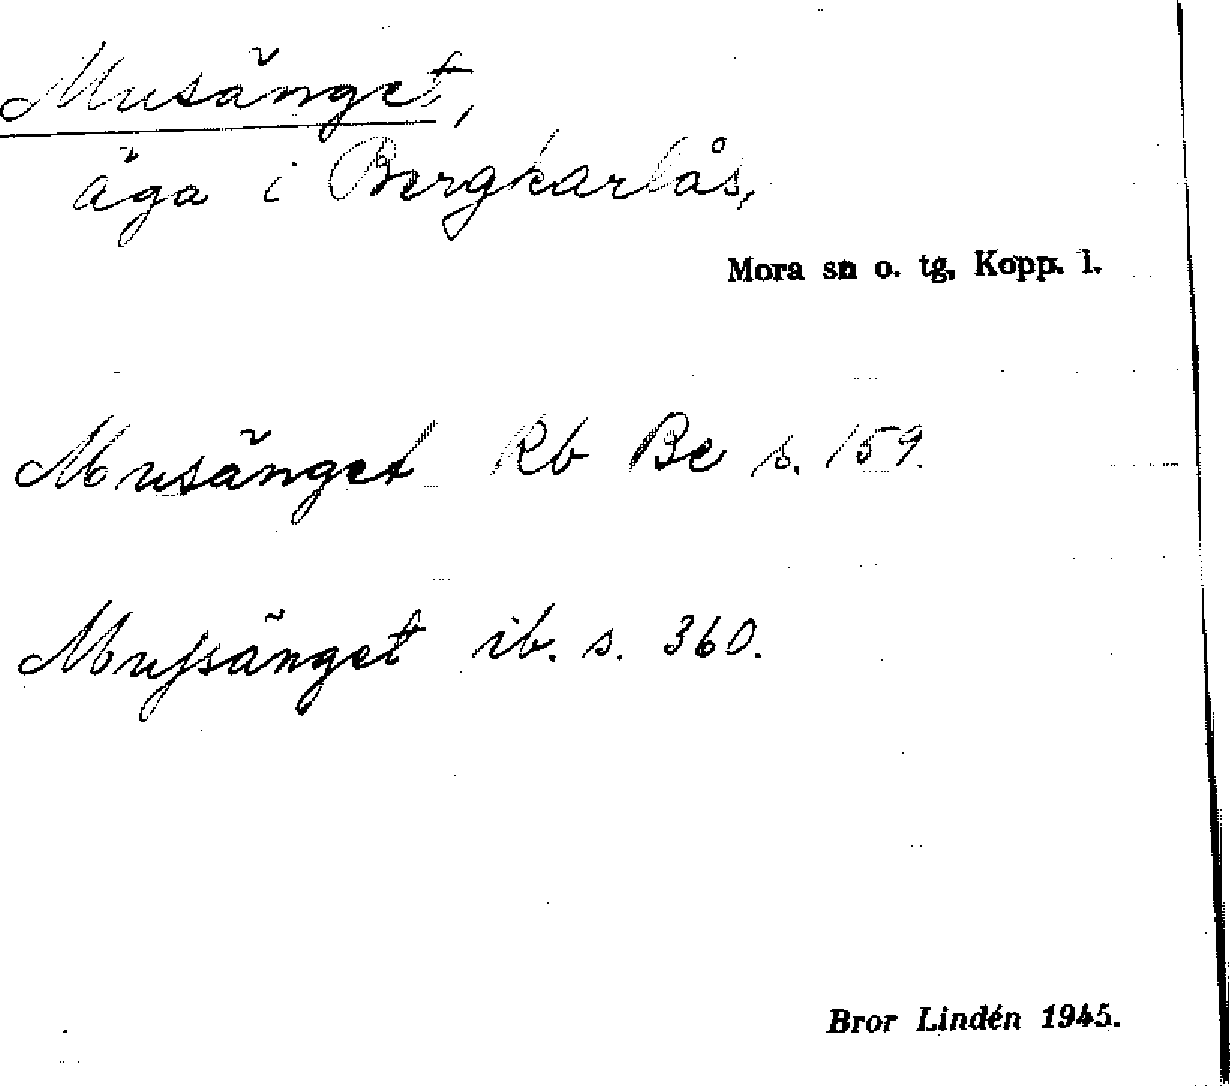 Musänget,
äga i Bergkarlås,
Mora sn o. tg, Kopp. l.
Musänget Rb Be s. 159.
Mussänget ib. s. 360.
Bror Lindén 1945.